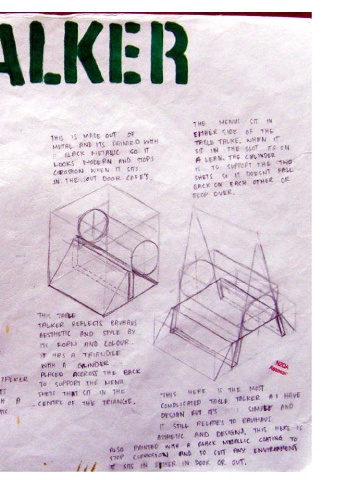 ALKER
THIS IS MADE OUT OF
METAL AND ITS PAINTED WITH
BLACK METALIC SO IT
LOOKS MODERN AND STOPS
COROSION WHEN IT SITS
IN THE OUT DOOR CAFE'S.
THE MENUS SIT IN
EITHER SIDE OF THE
TABLE TALKE. WHEN IT
SIT IN THE SLOT IS ON
A LEAN. THE CYLINDER
IS TO SUPPORT THE TWO
SHETS SO IT DOESN'T FALL
BACK ON EACH OTHER OR
FLOP OVER.
THIS TABLE
TALKER REFLECTS BAUHAUS
AESTHETIC AND STYLE BY
ITS FORM AND COLOUR.
IT HAS A TRIANGLE
WITH A CYLINDER
PLACED ACCROSS THE BACK
TO SUPPORT THE MENU
SHETS THAT SIT IN THE
CENTRE OF THE TRIANGLE.
NZQA
THIS HERE IS THE MOST
COMPLICATED TABLE TALKER I HAVE
DESIGN BUT IT'S SIMPLE AND
IT STILL RELATES TO BAUHAUS
AND DESIGNS, THIS HERE IS
ALSO PAINTED WITH A BLACK METALLIC COATING TO
STOP COROSION AND TO SUIT ANY ENVIROMENT
IT SITS IN EITHER IN DOOR OR OUT.